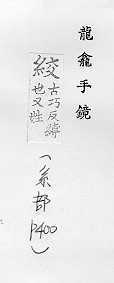 龍龕手鏡
絞
古巧反縛
也又姓
(糸部P400)